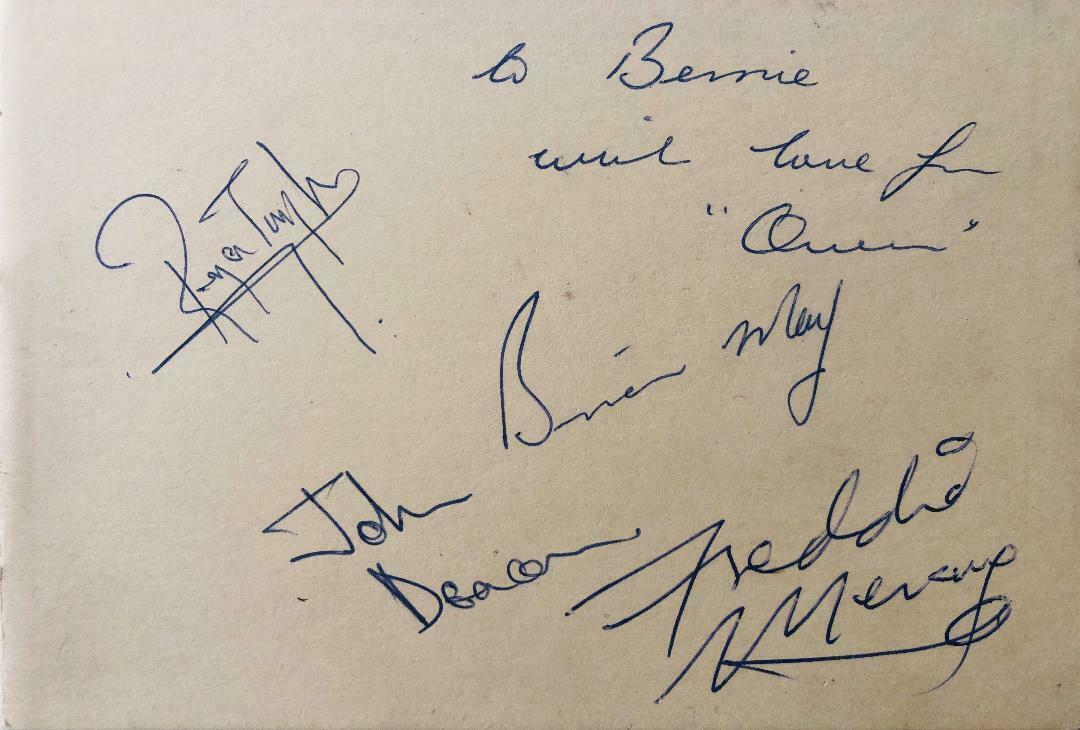 to Bernie
with love from
"Queen"
Roger Taylor
Brian May
John
Deacon
Freddie
Mercury